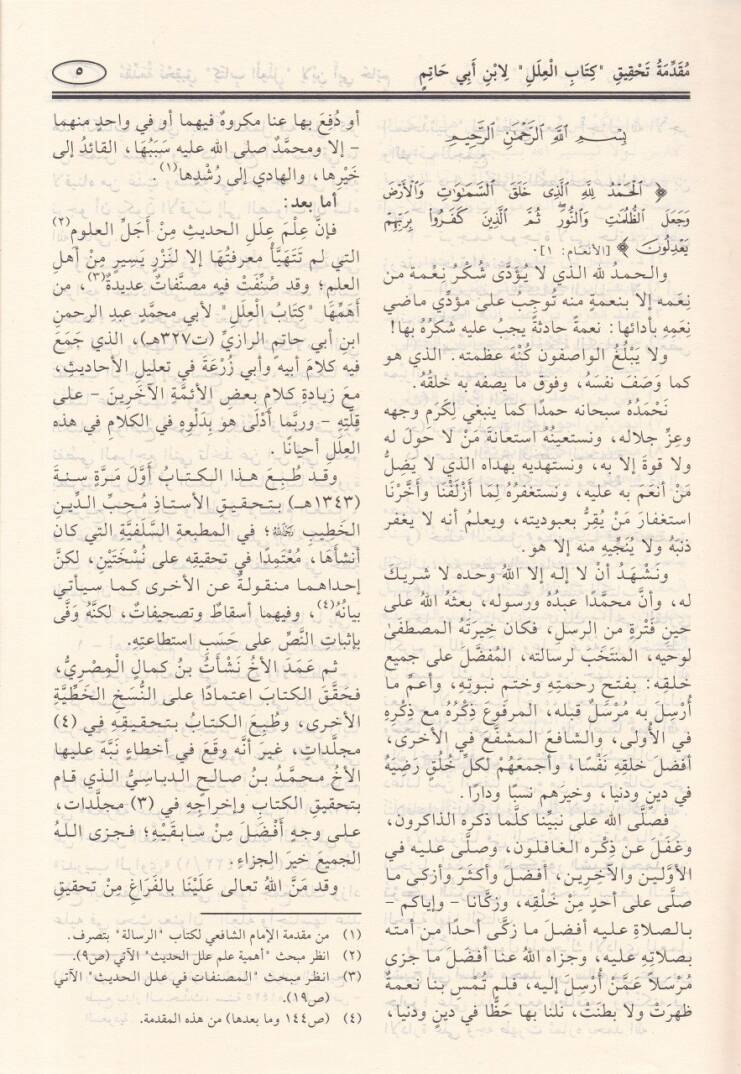 مُقَدِّمَةُ تَحْقِيقِ "كِتَابِ الْعِلَلِ" لِابْنِ أَبِي حَاتِمٍ
٥
بِسْمِ اللَّهِ الرَّحْمَٰنِ الرَّحِيمِ
﴿ الْحَمْدُ لِلَّهِ الَّذِي خَلَقَ السَّمَاوَاتِ وَالْأَرْضَ
وَجَعَلَ الظُّلُمَاتِ وَالنُّورَ ثُمَّ الَّذِينَ كَفَرُوا بِرَبِّهِمْ
يَعْدِلُونَ ﴾ [الأنعام: ١].
والحمدُ لله الذي لا يُؤدَّى شُكْرُ نِعْمة من
نِعَمه إلا بنعمةٍ منه تُوجِبُ على مؤدِّي ماضي
نِعَمِهِ بأدائها: نعمةً حادثةً يجبُ عليه شكرُهُ بها!
ولا يَبْلُغُ الواصفون كُنْهَ عظمته. الذي هو
كما وَصَفَ نفسَهُ، وفوق ما يصفه به خلقُه.
نَحْمَدُهُ سبحانه حمدًا كما ينبغي لِكَرَمِ وجهه
وعِزِّ جلاله، ونستعينُهُ استعانةَ مَنْ لا حولَ له
ولا قوةَ إلا به، ونستهديه بهداه الذي لا يَضِلُّ
مَنْ أنعَمَ به عليه، ونستغفرُهُ لِمَا أَزْلَفْنا وأخَّرْنا
استغفارَ مَنْ يُقِرُّ بعبوديته، ويعلمُ أنه لا يغفر
ذنبَهُ ولا يُنَجِّيهِ منه إلا هو.
ونَشْهَدُ أنْ لا إله إلا اللهُ وحده لا شريكَ
له، وأنَّ محمَّدًا عبدُهُ ورسوله، بعثَهُ الله على
حينِ فَتْرةٍ من الرسلِ، فكان خِيرتَهُ المصطفَى
لوحيه، المنتَخَبَ لرسالته، المُفضَّلَ على جميع
خلقِه: بفتحِ رحمتِهِ وختمِ نبوتِهِ، وأعمَّ ما
أُرْسِلَ به مُرْسَلٌ قبله، المرفوعَ ذِكْرُهُ مع ذِكْرِهِ
في الأُولى، والشافعَ المشفَّعَ في الأخرى،
أفضلَ خلقِهِ نَفْسًا، وأجمعَهُمْ لكلِّ خُلُقٍ رَضِيَهُ
في دينٍ ودنيا، وخيرَهم نسبًا ودارًا.
فصلَّى الله على نبيِّنا كلَّما ذكره الذاكرون،
وغَفَلَ عن ذِكْره الغافلون، وصلَّى عليه في
الأوَّلين والآخِرين، أفضلَ وأكثَرَ وأزكى ما
صلَّى على أحدٍ مِنْ خَلْقِه، وزكَّانا – وإياكم –
بالصلاةِ عليه أفضلَ ما زكَّى أحدًا من أمته
بصلاتِهِ عليه، وجزاه الله عنا أفضَلَ ما جزى
مُرْسَلاً عمَّنْ أُرْسِلَ إليه، فلم تُمْسِ بنا نعمةٌ
ظهرَتْ ولا بطنَتْ، نلنا بها حَظًّا في دينٍ ودنيا،
أو دُفِعَ بها عنا مكروهٌ فيهما أو في واحدٍ منهما
– إلا ومحمَّدٌ صلى الله عليه سَبَبُهَا، القائدُ إلى
خَيْرِها، والهادي إلى رُشْدِها(١).
أما بعد:
فإنَّ عِلْمَ عِلَلِ الحديثِ مِنْ أَجَلِّ العلوم(٢)
التي لم تَتَهَيَّأْ معرفتُهَا إلا لنَزْرٍ يَسِيرٍ مِنْ أهلِ
العلم؛ وقد صُنِّفَتْ فيه مصنَّفاتٌ عديدةٌ(٣)، من
أهَمِّهَا "كِتَابُ العِلَلِ" لأبي محمَّدٍ عبدِ الرحمنِ
ابنِ أبي حاتمٍ الرازيِّ (ت٣٢٧هـ)، الذي جَمَعَ
فيه كلامَ أبيه وأبي زُرْعَةَ في تعليلِ الأحاديثِ،
معَ زيادةِ كلامِ بعضِ الأئمَّةِ الآخَرِينَ – على
قِلَّتِهِ – وربَّما أدْلَى هو بِدَلْوِهِ في الكلامِ في هذه
العِلَلِ أحيانًا .
وقد طُبِعَ هذا الكتابُ أوَّلَ مَرَّةٍ سنةَ
(١٣٤٣هـ) بتحقيقِ الأستاذِ مُحِبِّ الدِّينِ
الخَطِيبِ رَحِمَهُ اللهُ؛ في المطبعةِ السَّلَفيَّةِ التي كان
أنشأَهَا، مُعْتَمِدًا في تحقيقه على نُسْخَتَيْنِ، لكنَّ
إحداهما منقولةٌ عن الأخرى كما سيأتي
بيانُهُ(٤)، وفيهما أسقاطٌ وتصحيفاتٌ، لكنَّهُ وَفَّى
بإثباتِ النَّصِّ على حَسَبِ استطاعتِهِ.
ثم عَمَدَ الأخُ نَشْأَتُ بنُ كمالٍ المِصْرِيُّ،
فحقَّقَ الكتابَ اعتمادًا على النُّسَخِ الخَطِّيَّةِ
الأخرى، وطُبِعَ الكتابُ بتحقيقِهِ في (٤)
مجلَّداتٍ، غيرَ أنَّه وقَعَ في أخطاءٍ نَبَّهَ عليها
الأخُ محمَّدُ بنُ صالحٍ الدباسيُّ الذي قام
بتحقيقِ الكتابِ وإخراجِهِ في (٣) مجلَّدات،
على وجهٍ أَفْضَلَ مِنْ سابقَيْهِ؛ فجزى اللهُ
الجميعَ خيرَ الجزاءِ.
وقد مَنَّ اللهُ تعالى عَلَيْنَا بالفَرَاغِ مِنْ تحقيقِ
(١) من مقدمة الإمام الشافعي لكتاب "الرسالة" بتصرف.
(٢) انظر مبحث "أهمية علم علل الحديث" الآتي (ص٩).
(٣) انظر مبحث "المصنفات في علل الحديث" الآتي
(ص١٩).
(٤) (ص١٤٤ وما بعدها) من هذه المقدمة.